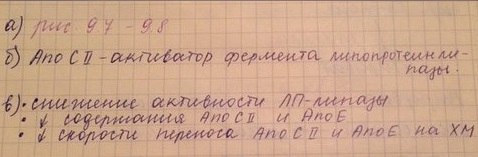 а) рис 9.7 - 9.8
б) Апо CII - активатор фермента липопротеинли-
пазы.
в) • снижение активности ЛП-липазы
• ↓ содержания Апо CII и АпоЕ
• ↓ скорости переноса Апо CII и АпоЕ на ХМ